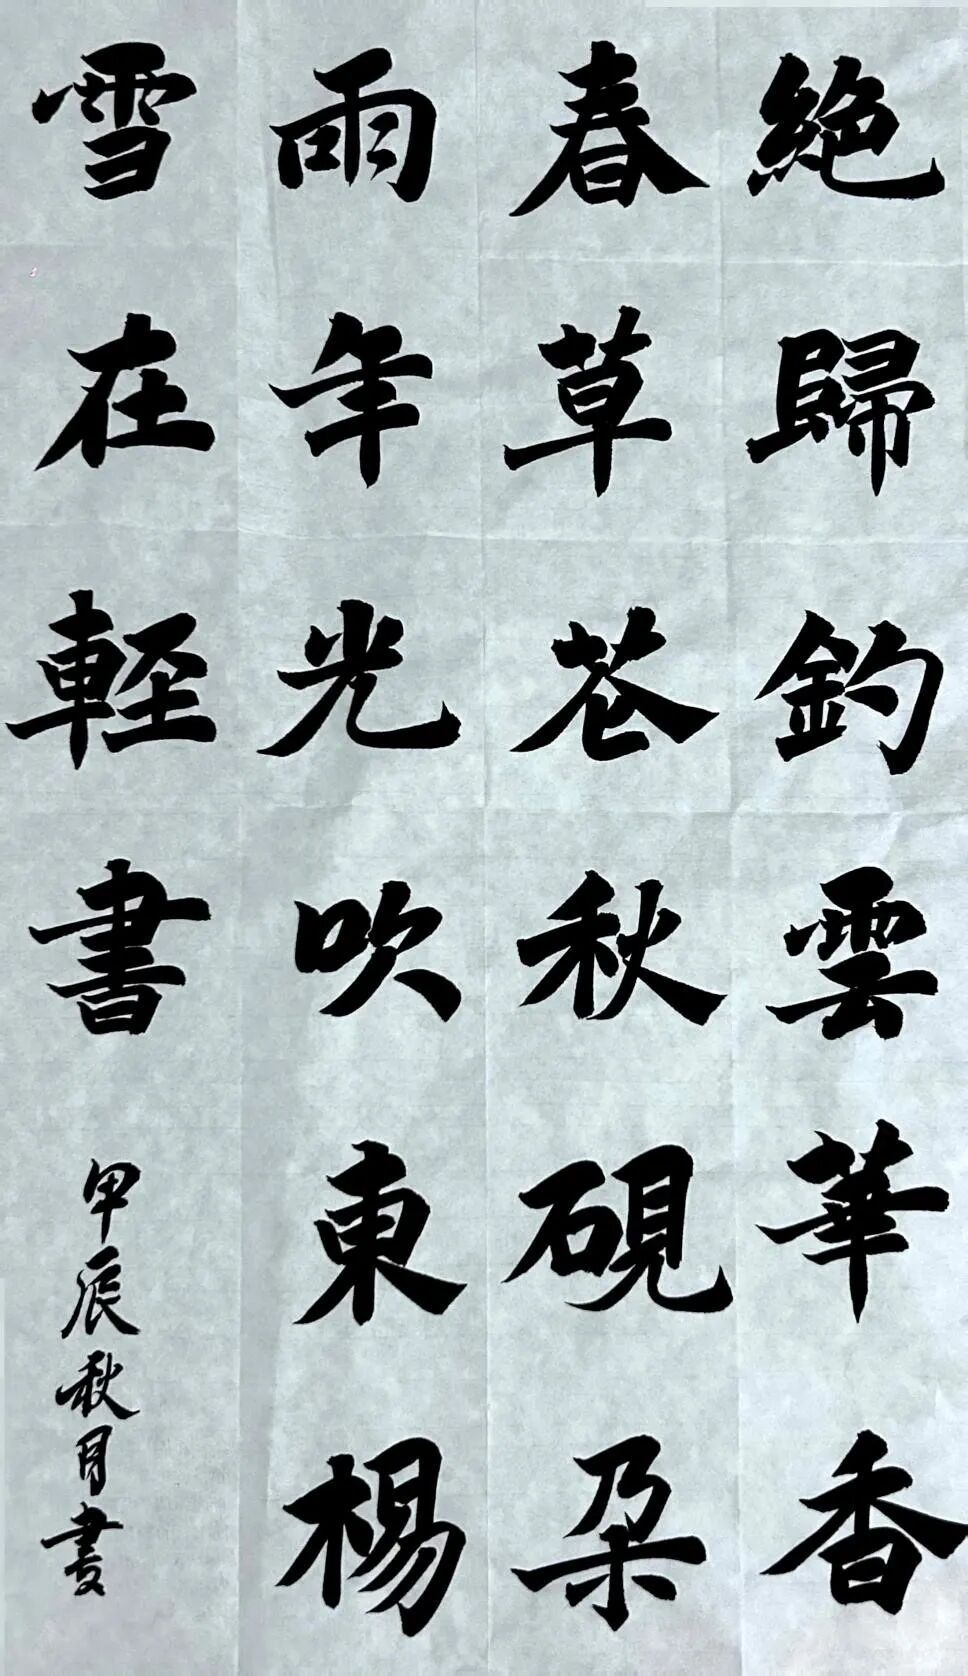 絶歸釣雲華香
春草花秋硯朵
雨年光吹東楊
雪在輕書
甲辰秋月書